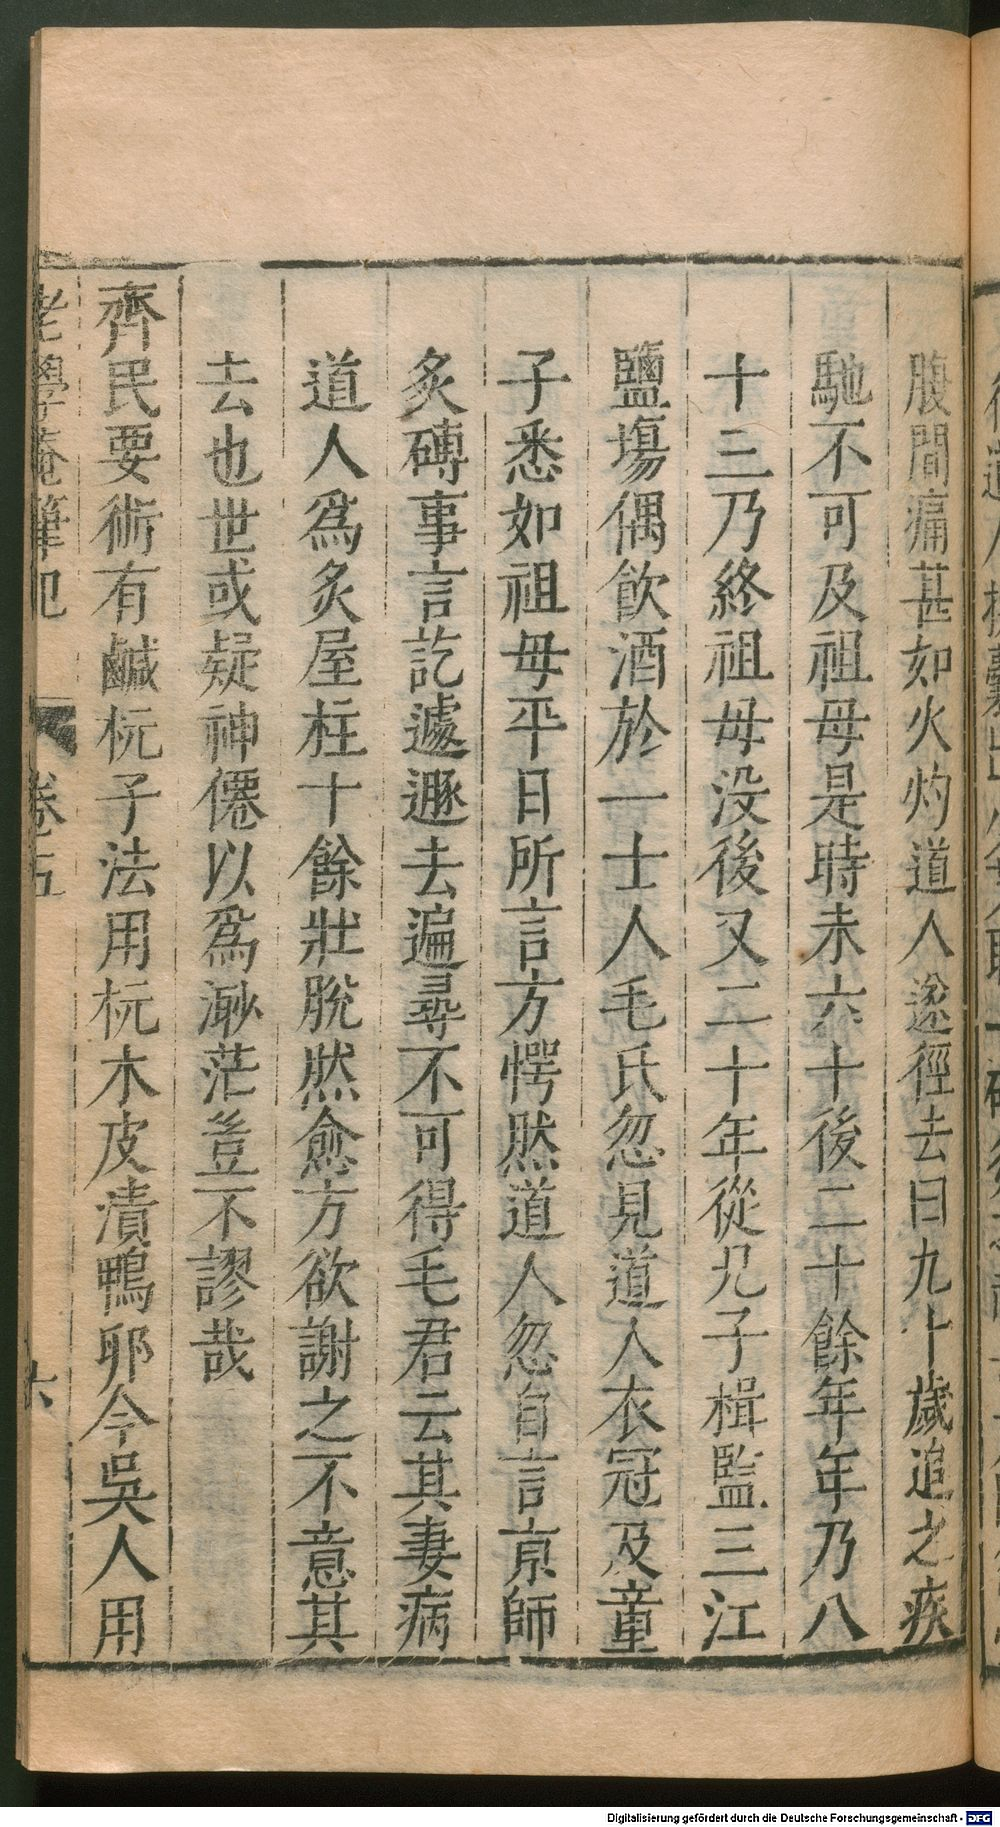 腹間痛甚如火灼道人遂徑去曰九十歲追之疾
馳不可及祖母是時未六十後二十餘年年乃八
十三乃終祖母没後又二十年從兄子楫監三江
鹽塲偶飲酒於一士人毛氏忽見道人衣冠及童
子悉如祖母平日所言方愕然道人忽自言京師
炙磚事言訖遽遯去遍尋不可得毛君云其妻病
道人爲炙屋柱十餘壯脫然愈方欲謝之不意其
去也世或疑神僊以爲渺茫豈不謬哉
齊民要術有鹹杬子法用杬木皮漬鴨卵今吳人用
老學菴筆記 卷五 六
Digitalisierung gefördert durch die Deutsche Forschungsgemeinschaft - DFG